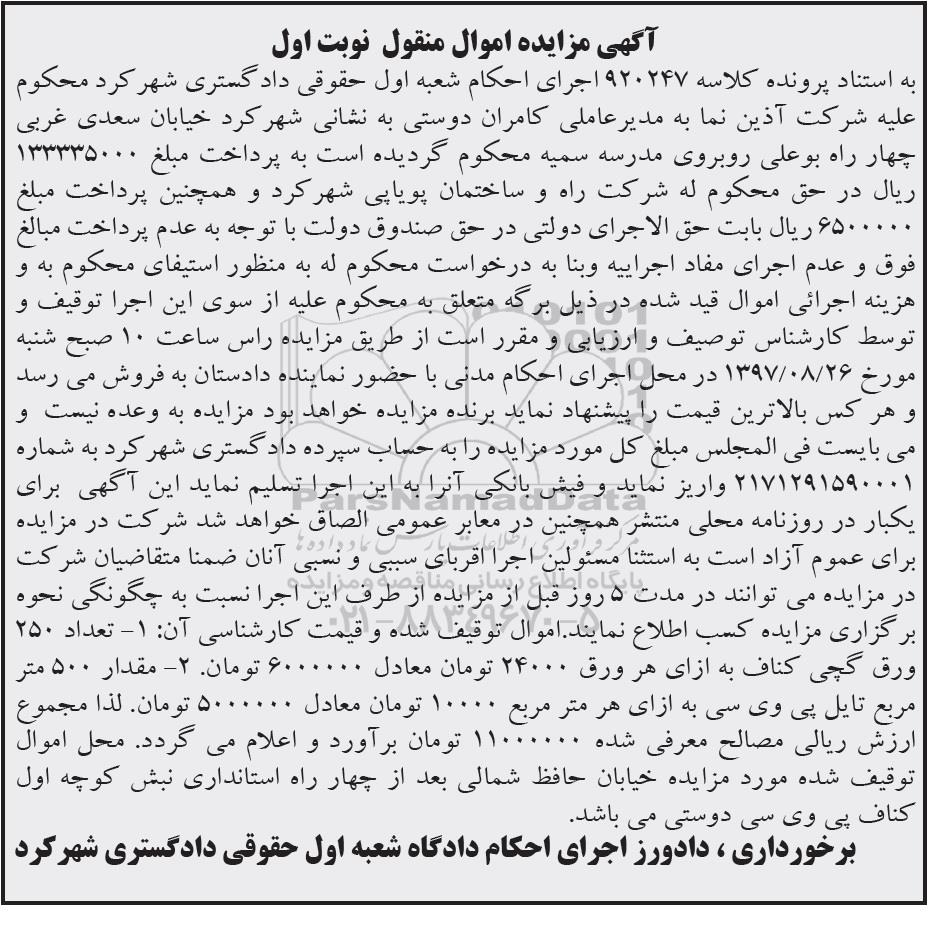 آگهی مزایده اموال منقول نوبت اول
به استناد پرونده کلاسه ۹۲۰۲۴۷ اجرای احکام شعبه اول حقوقی دادگستری شهرکرد محکوم
علیه شرکت آذین نما به مدیرعاملی کامران دوستی به نشانی شهرکرد خیابان سعدی غربی
چهار راه بوعلی روبروی مدرسه سمیه محکوم گردیده است به پرداخت مبلغ ۱۳۳۳۳۵۰۰۰
ریال در حق محکوم له شرکت راه و ساختمان پویاپی شهرکرد و همچنین پرداخت مبلغ
۶۵۰۰۰۰۰ ریال بابت حق الاجرای دولتی در حق صندوق دولت با توجه به عدم پرداخت مبالغ
فوق و عدم اجرای مفاد اجراییه وبنا به درخواست محکوم له به منظور استیفای محکوم به و
هزینه اجرائی اموال قید شده در ذیل برگه متعلق به محکوم علیه از سوی این اجرا توقیف و
توسط کارشناس توصیف و ارزیابی و مقرر است از طریق مزایده راس ساعت ۱۰ صبح شنبه
مورخ ۱۳۹۷/۰۸/۲۶ در محل اجرای احکام مدنی با حضور نماینده دادستان به فروش می رسد
و هر کس بالاترین قیمت را پیشنهاد نماید برنده مزایده خواهد بود مزایده به وعده نیست و
می بایست فی المجلس مبلغ کل مورد مزایده را به حساب سپرده دادگستری شهرکرد به شماره
۲۱۷۱۲۹۱۵۹۰۰۰۱ واریز نماید و فیش بانکی آنرا به این اجرا تسلیم نماید این آگهی برای
ParsNamadData
یکبار در روزنامه محلی منتشر همچنین در معابر عمومی الصاق خواهد شد شرکت در مزایده
برای عموم آزاد است به استثنا مسئولین اجرا اقربای سببی و نسبی آنان ضمنا متقاضیان شرکت
پایگاه اطلاع رسانی مناقصه و مزایده
در مزایده می توانند در مدت ۵ روز قبل از مزایده از طرف این اجرا نسبت به چگونگی نحوه
۰۲۱-۸۸۳۴۹۶۷۰-۵
برگزاری مزایده کسب اطلاع نمایند.اموال توقیف شده و قیمت کارشناسی آن: ۱- تعداد ۲۵۰
ورق گچی کناف به ازای هر ورق ۲۴۰۰۰ تومان معادل ۶۰۰۰۰۰۰ تومان. ۲- مقدار ۵۰۰ متر
مربع تایل پی وی سی به ازای هر متر مربع ۱۰۰۰۰ تومان معادل ۵۰۰۰۰۰۰ تومان. لذا مجموع
ارزش ریالی مصالح معرفی شده ۱۱۰۰۰۰۰۰ تومان برآورد و اعلام می گردد. محل اموال
توقیف شده مورد مزایده خیابان حافظ شمالی بعد از چهار راه استانداری نبش کوچه اول
کناف پی وی سی دوستی می باشد.
برخورداری ، دادورز اجرای احکام دادگاه شعبه اول حقوقی دادگستری شهرکرد